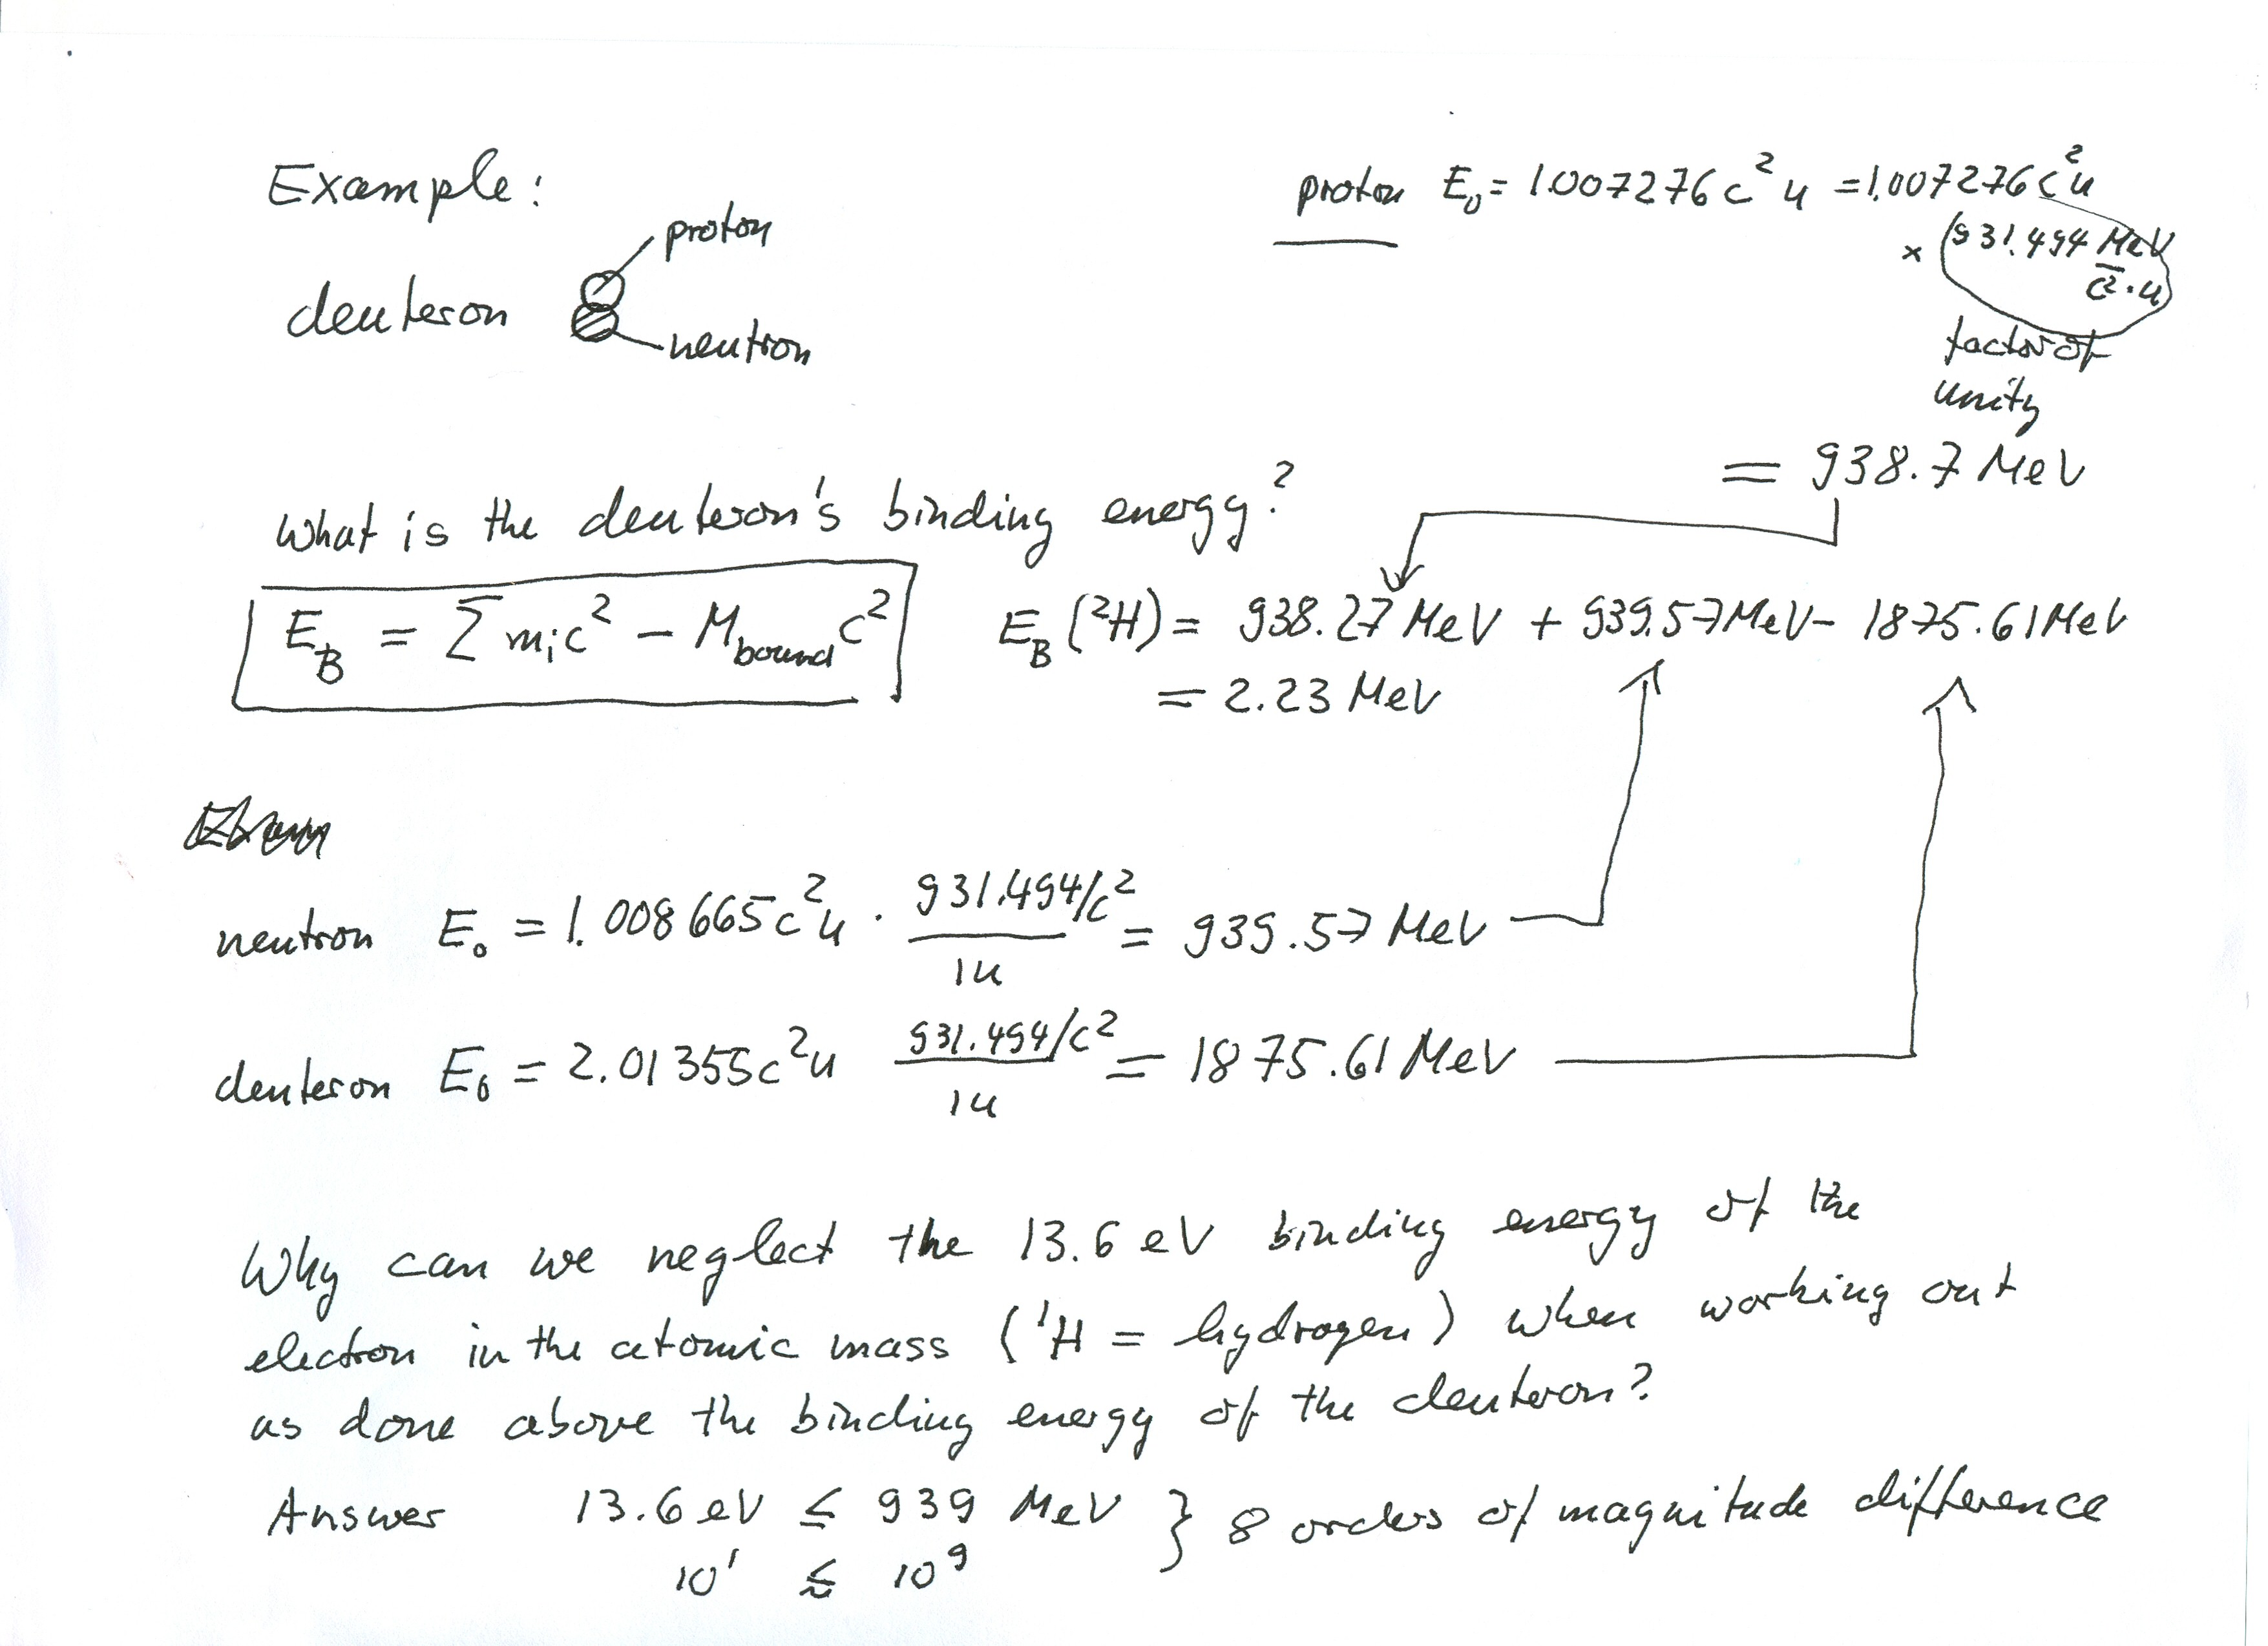 Example:
proton
deuteron
neutron
proton E₀ = 1.007276 c² u = 1.007276 c² u
× (931.494 MeV / c² · u)
factor of
unity
= 938.7 MeV
What is the deuteron's binding energy?
E_B = Σ mᵢc² − M_bound c²
E_B (²H) = 938.27 MeV + 939.57 MeV − 1875.61 MeV
= 2.23 MeV
neutron E₀ = 1.008665 c² u · 931.494/c² / 1u = 939.57 MeV
deuteron E₀ = 2.01355 c² u 931.494/c² / 1u = 1875.61 MeV
Why can we neglect the 13.6 eV binding energy of the
electron in the atomic mass (¹H = hydrogen) when working out
as done above the binding energy of the deuteron?
Answer 13.6 eV ≤ 939 MeV } 8 orders of magnitude difference
10¹ ≲ 10⁹